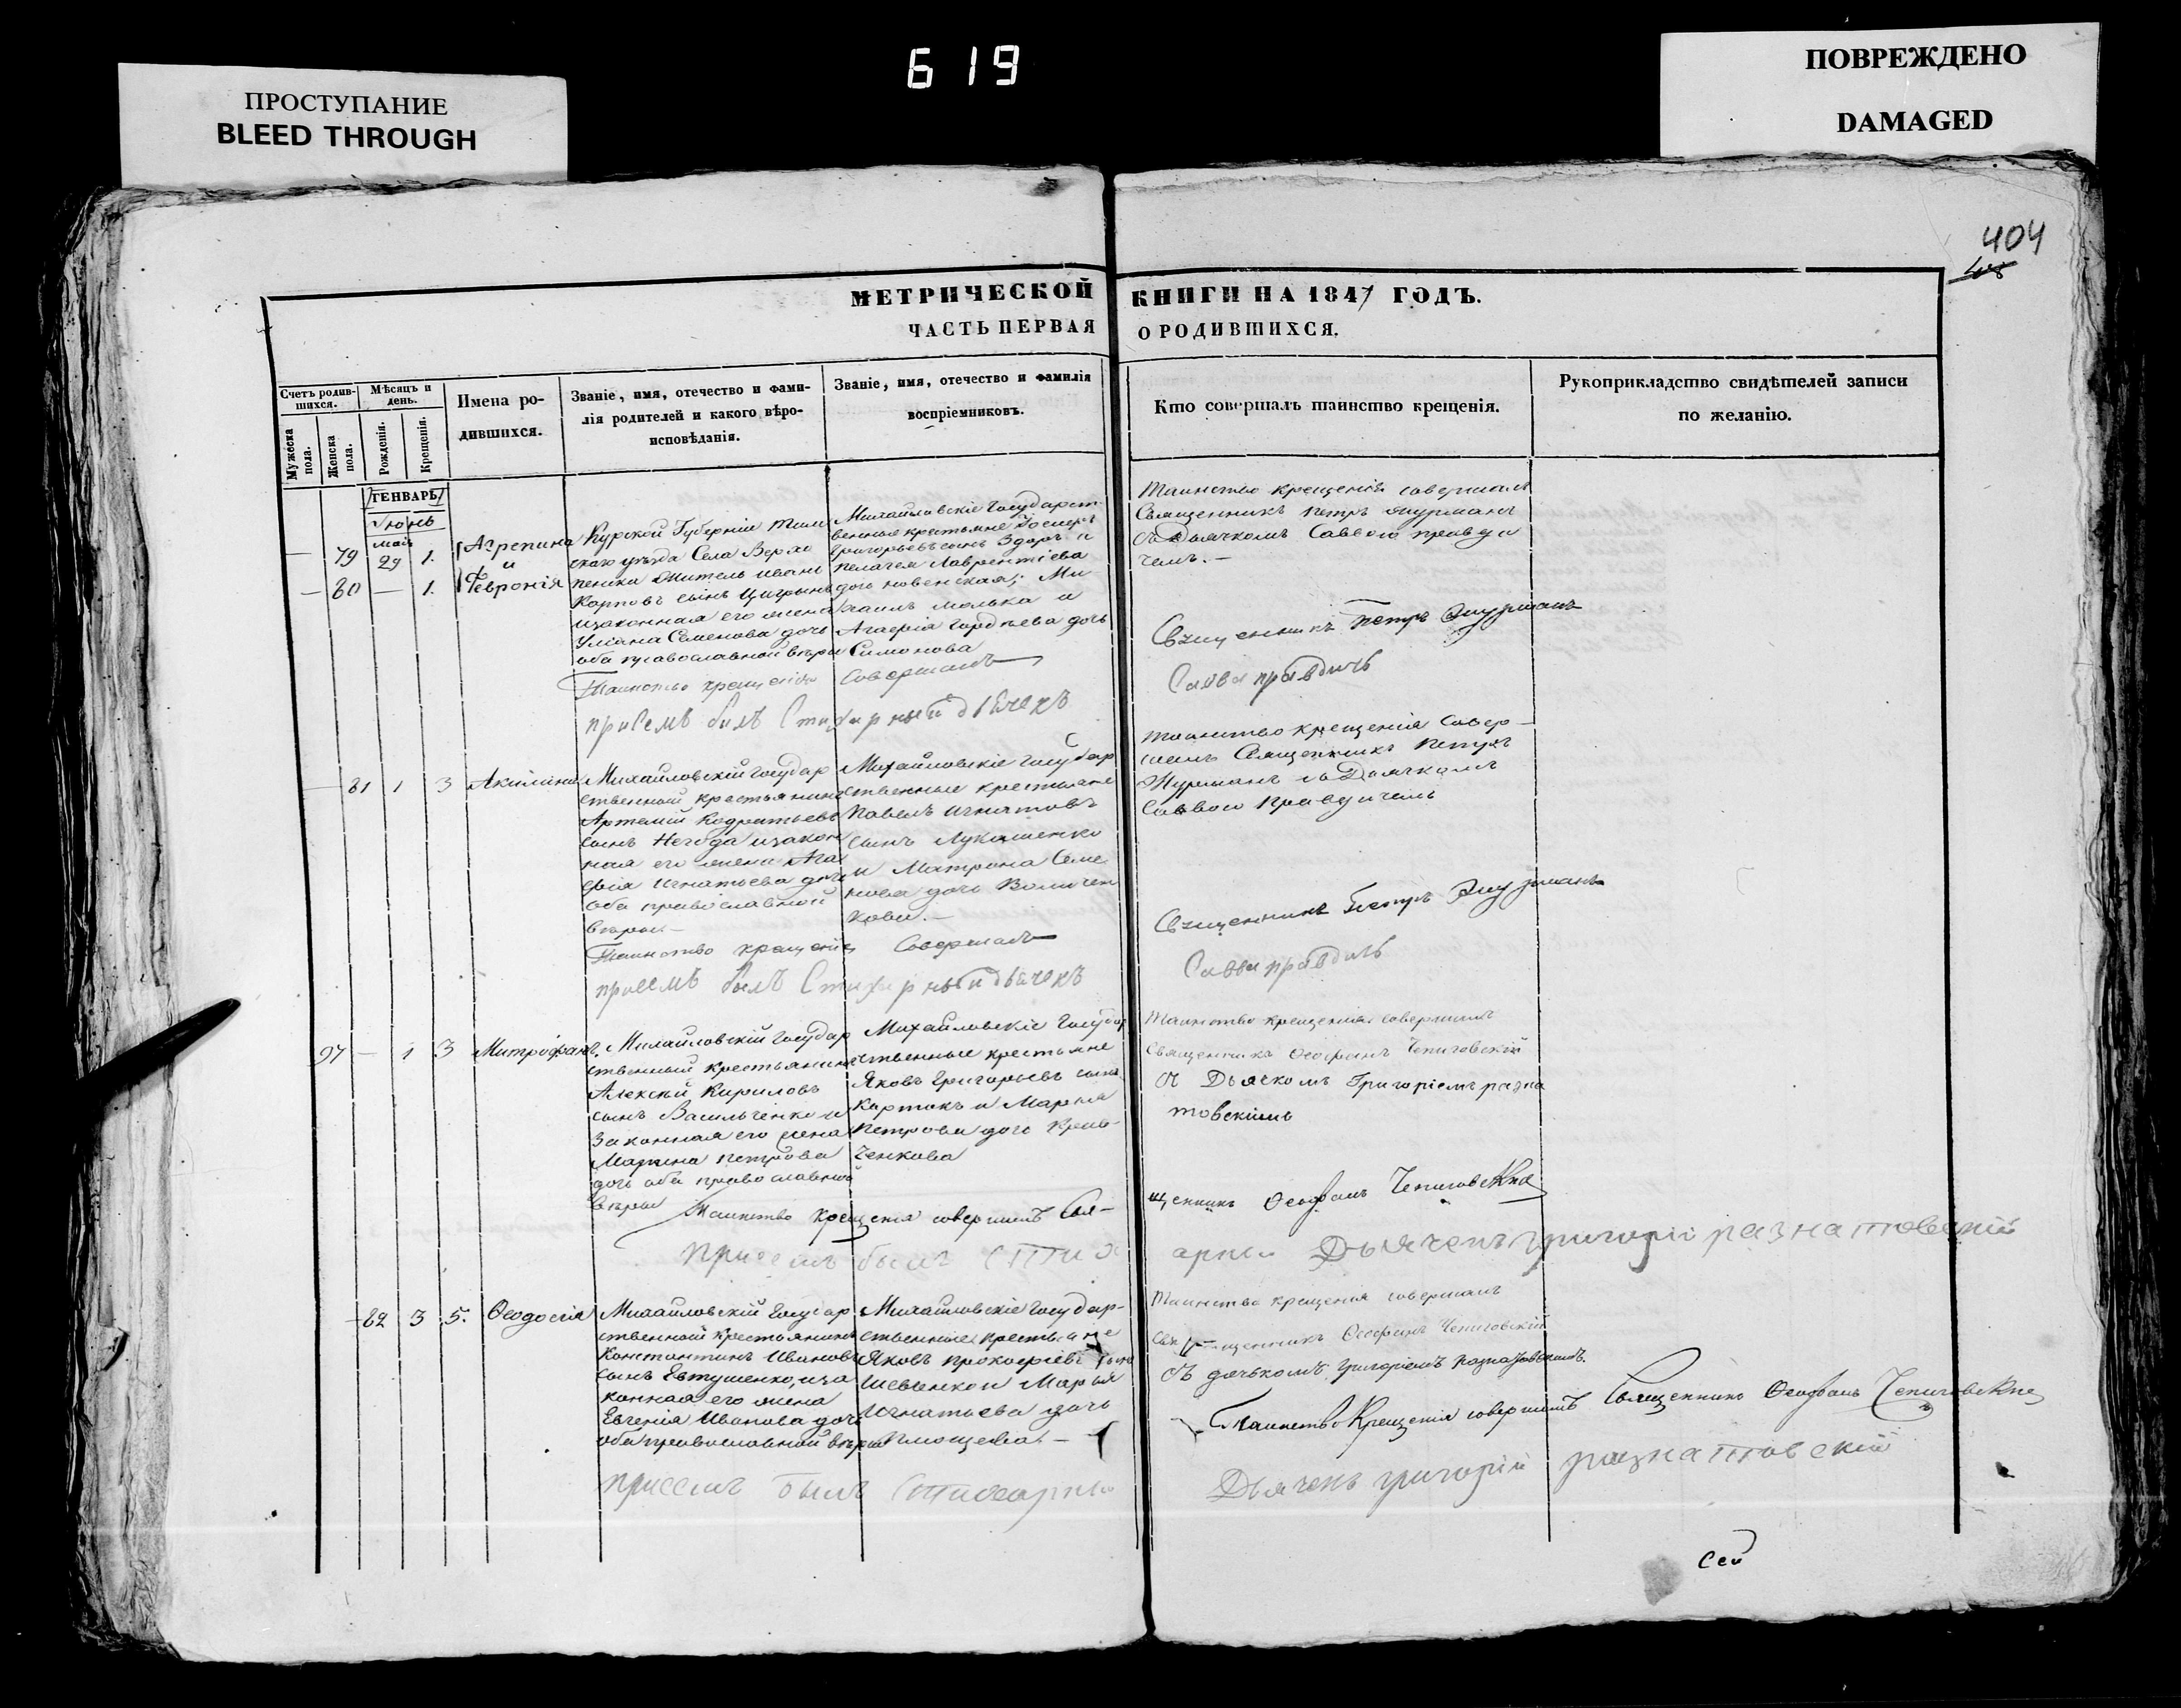 619
ПРОСТУПАНИЕ
BLEED THROUGH
ПОВРЕЖДЕНО
DAMAGED
404
МЕТРИЧЕСКОЙ КНИГИ НА 1847 ГОДЪ.
ЧАСТЬ ПЕРВАЯ О РОДИВШИХСЯ.
Счетъ родив-
шихся.
Мужеска
пола.
Женска
пола.
Мѣсяцъ и
день.
Рожденія.
Крещенія.
Имена ро-
дившихся.
Званіе, имя, отечество и фами-
лія родителей и какого вѣро-
исповѣданія.
Званіе, имя, отечество и фамилія
воспріемниковъ.
Кто совершалъ таинство крещенія.
Рукоприкладство свидѣтелей записи
по желанію.
ГЕНВАРЬ
Іюнь
май
— 79 29 1.
— 80 — 1.
Агрепина
и
Февронія
Курской Губерніи Тим
скаго уѣзда Села Верхо
пенка житель Иванъ
Карповъ сынъ
изаконная его жена
Уліана Семенова дочь
оба православной вѣры
Михайловскіе Государст
венные крестьяне
Григорьевъ сынъ и
Пелагея Лаврентіева
дочь Ми
хаилъ и
Агафія Гордѣева дочь
Симонова
Таинство крещенія совершалъ
Священникъ Петръ Журманъ
съ Дьячкомъ Саввою Правди
чемъ. —
Таинство крещенія Совершалъ
Священникъ Петръ Журманъ
присемъ былъ Стихарный дьячекъ
Савва правдичь
— 81 1 3 Акилина
Михайловскій государ
ственный крестьянинъ
Артемій Кодратьевъ
сынъ Негода изакон
ная его жена Ага
фія Игнатьева дочь
оба православной
вѣры. —
Михайловскіе Государ
ственные крестьяне
Павелъ Игнатовъ
сынъ Лукашенко
и Матрона Семе
нова дочь
кова. —
таинство крещенія Совер—
шалъ Священникъ Петръ
Журманъ съ Дьячкомъ
Саввою Правдичемъ
Таинство крещенія Совершалъ
Священникъ Петръ Журманъ
присемъ былъ Стихарный дьячекъ
Савва правдичь
97 — 1 3 Митрофанъ.
Михайловскій Государ
ственный крестьянинъ
Алексій Кириловъ
сынъ Васильченко и
законная его жена
Марина Петрова
дочь оба православной
вѣры
Михайловскіе Государ
ственные крестьяне
Яковъ Григорьевъ сынъ
и Марья
Петрова дочь
ченкова
Таинство крещенія совершалъ
священникъ Ѳеофанъ Чепиговскій
съ Дьячкомъ Григоріемъ разна
товскимъ
Таинство крещенія совершилъ Свя-
щенникъ Ѳеофанъ Чепиговскій
присемъ былъ стих
арны Дьячекъ григорій разнатовскій
— 82 3 5. Ѳеодосія
Михайловскій Государ
ственный крестьянинъ
Константинъ Ивановъ
сынъ Евтушенко, иза
конная его жена
Евгенія Иванова дочь
оба православной вѣры
Михайловскіе Государ-
ственные крестьяне
Яковъ Прокофіевъ сынъ
Шевченко и Марья
Игнатьева дочь
Таинство крещенія совершалъ
священникъ Ѳеофанъ Чепиговскій
съ дячькомъ григоріемъ разнатовскимъ.
Таинство Крещенія совершилъ Священникъ Ѳеофанъ Чепиговскій
присемъ былъ стихарны
Дьячекъ григорій разнатовскій
Сей